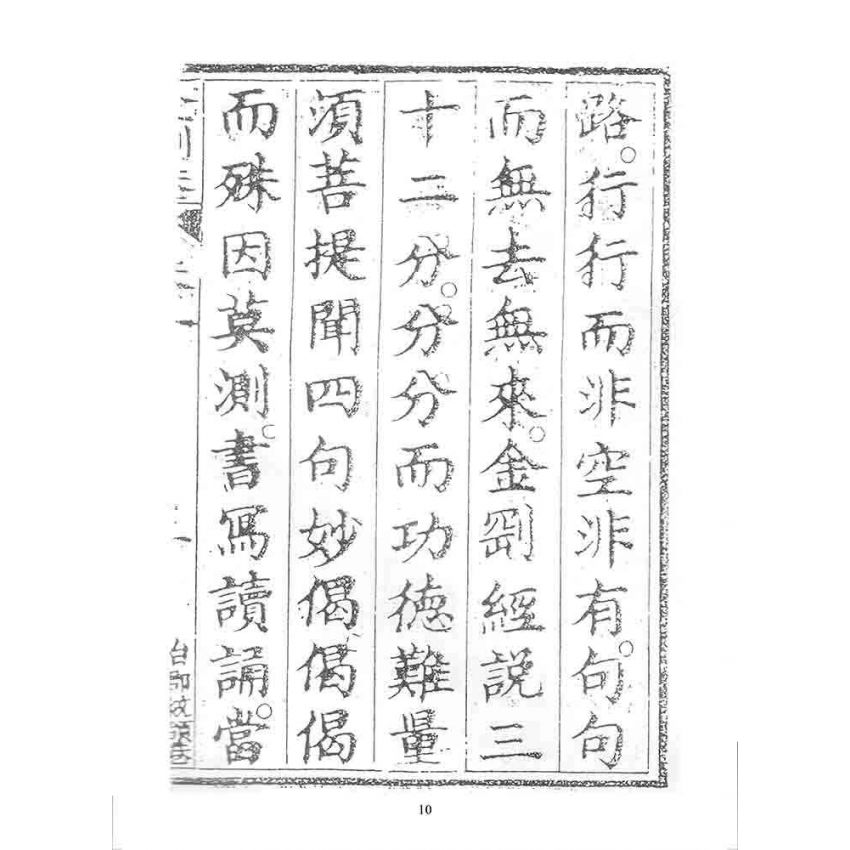 路。行行而非空非有。句句
而無去無來。金剛經說三
十二分。分分而功德難量
須菩提聞四句妙偈偈偈
而殊因莫測。書寫讀誦。當
10